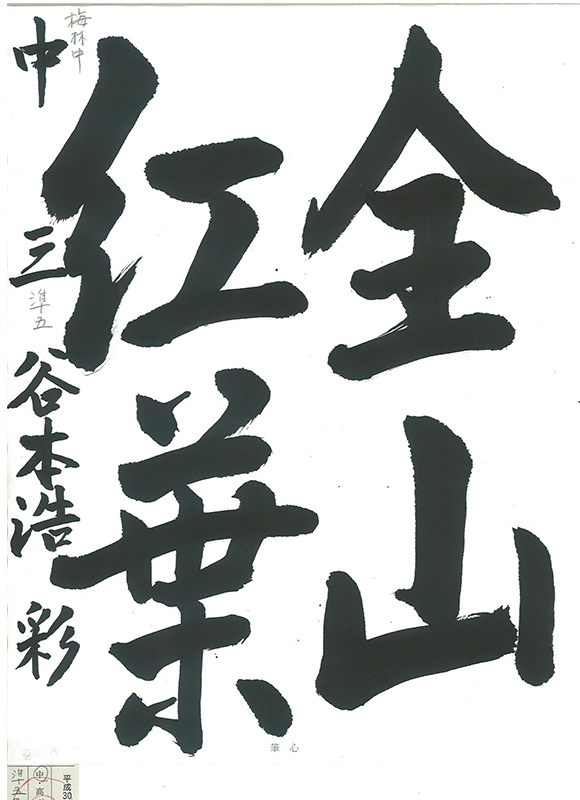 全山
紅葉
中三 谷本浩彩
梅林中
準五
心筆
平成30
中・高
準五